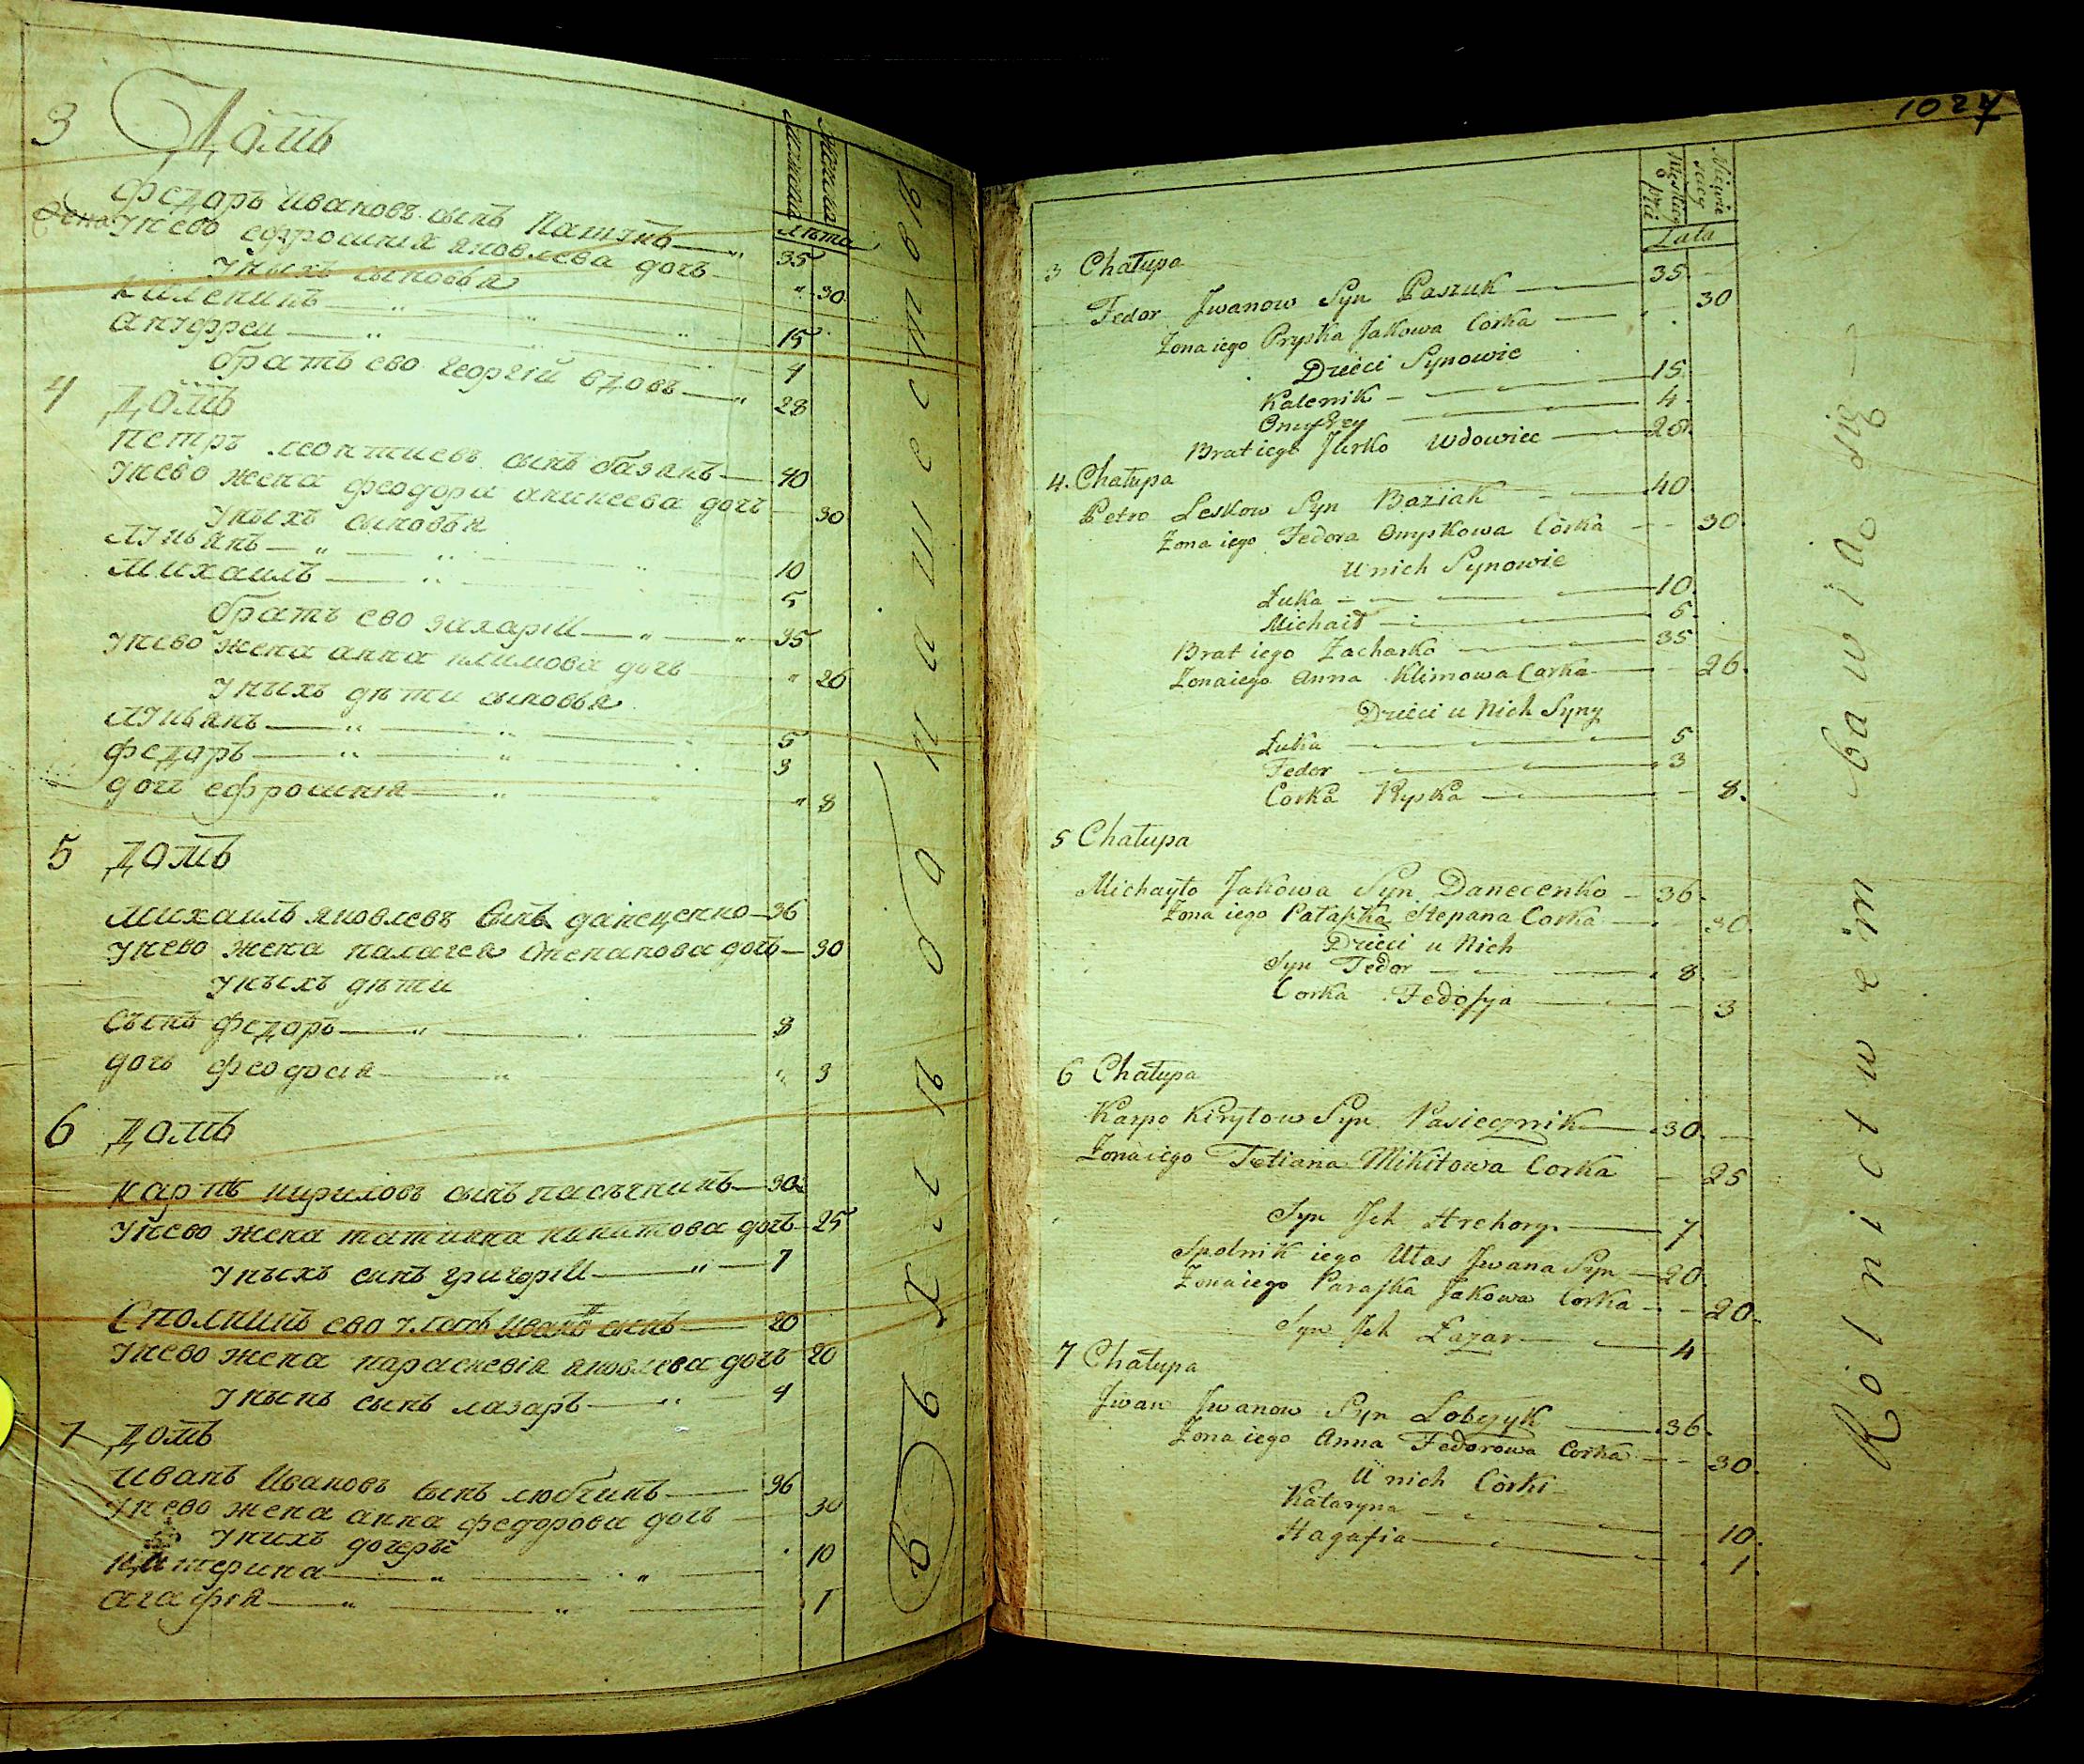 3 Домъ
Мужеска
Женска
Лѣта
Федоръ Ивановъ сынъ Пашукъ 35
Жена
унево ефросиния яковлева дочъ 30
унихъ сыновья
Каленикъ 15
Ануфреи 4
братъ ево Георгiй вдовъ 28
4 Домъ
Петръ леонтиевъ сынъ базакъ 40
унево жена феодора аникеева дочъ 30
уныхъ сыновья
Лукьянъ 10
Михаилъ 5
братъ ево захарiй 35
унево жена анна климова дочъ 26
уныхъ дѣти сыновья
Лукьянъ 5
федоръ 3
дочъ ефросиния 8
5 Домъ
Михаилъ яковлевъ сынъ данеценко 36
унево жена палагея степанова дочъ 30
уныхъ дѣти
сынъ федоръ 8
дочъ феодосiя 3
6 Домъ
карпъ кириловъ сынъ пасѣчникъ 30
унево жена татияна никитова дочъ 25
уныхъ сынъ григорiй 7
Сполникъ ево улас Иванъ сынъ 20
унево жена параскевiя яковлева дочъ 20
уныхъ сынъ лазаръ 4
7 Домъ
иванъ Ивановъ сынъ любчикъ 36
унево жена анна федорова дочъ 30
унихъ дочери
катерина 10
агафiя 1
въ хлѣбопашестве
1027
Męskiey Płci
Niewieściey
Lata
3 Chałupa
Fedor Jwanow Syn Paszuk 35
Żona iego Pryska Jakowa Corka 30
Dzieci Synowie
Kalenik 15
Onufrey 4
Brat iego Jurko Wdowiec 28
4. Chałupa
Petro Leskow Syn Baziak 40
Żona iego Fedora Onyskowa Córka 30
U nich Synowie
Łuka 10
Michaił 5
Brat iego Zacharko 35
Żona iego Anna Klimowa Carka 26
Dzieci u Nich Syny
Łuka 5
Fedor 3
Corka Pryska 8
5 Chałupa
Michayło Jakowa Syn Danecenko 36
Żona iego Pałaszka Stepana Corka 30
Dzieci u Nich
Syn Fedor 8
Corka Fedosya 3
6 Chałupa
Karpo Kiryłow Syn Pasiecznik 30
Żona iego Tetiana Mikitowa Corka 25
Syn Jch Hrehory 7
Spolnik iego Ułas Jwana Syn 20
Żona iego Paraska Jakowa Corka 20
Syn Jch Łazar 4
7 Chałupa
Jwan Jwanow Syn Lobczyk 36
Żona iego Anna Fedorowa Corka 30
U nich Córki
Kataryna 10
Hagafia 1
Rólnictwem bawiąo się